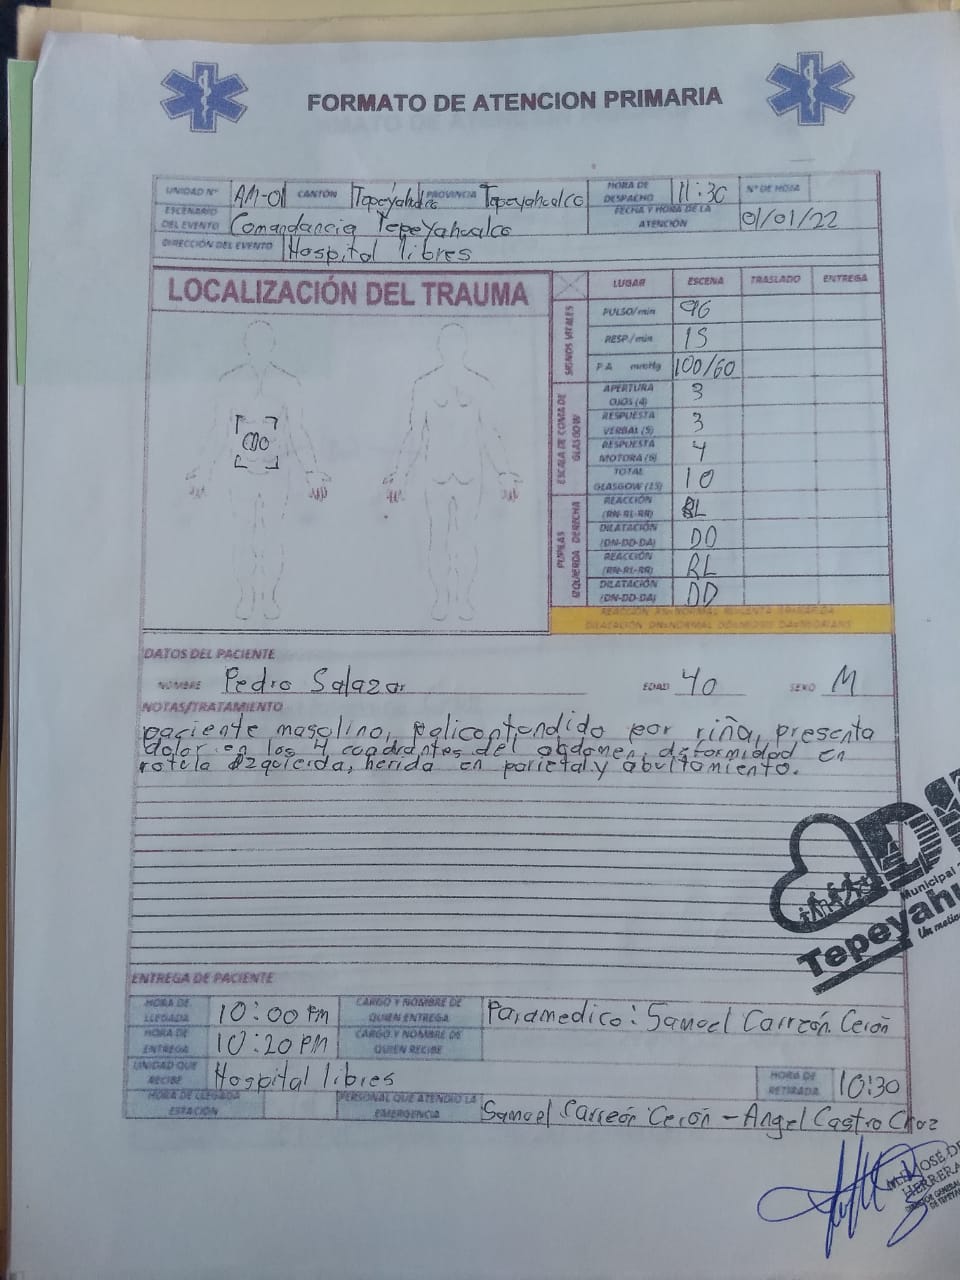 FORMATO DE ATENCION PRIMARIA
UNIDAD N° AM-01 CANTÓN Tepeyahualco PROVINCIA Tepeyahualco HORA DE DESPACHO 11:30 N° DE HOJA
ESCENARIO DEL EVENTO Comandancia Tepeyahualco FECHA Y HORA DE LA ATENCIÓN 01/01/22
DIRECCIÓN DEL EVENTO Hospital libres
LOCALIZACIÓN DEL TRAUMA
LUGAR ESCENA TRASLADO ENTREGA
SIGNOS VITALES
PULSO/min 96
RESP./min 15
P.A mmHg 100/60
ESCALA DE COMA DE GLASGOW
APERTURA OJOS (4) 3
RESPUESTA VERBAL (5) 3
RESPUESTA MOTORA (6) 4
TOTAL GLASGOW (15) 10
PUPILAS
IZQUIERDA DERECHA
REACCIÓN (RN-RL-RR) RL
DILATACIÓN (DN-DD-DA) DD
REACCIÓN (RN-RL-RR) RL
DILATACIÓN (DN-DD-DA) DD
DATOS DEL PACIENTE
NOMBRE Pedro Salazar EDAD 40 SEXO M
NOTAS/TRATAMIENTO
paciente masculino, policontundido por riña, presenta
dolor en los 4 cuadrantes del abdomen, deformidad en
rotula izquierda, herida en parietal y abultamiento.
Municipal
Tepeyahu
ENTREGA DE PACIENTE
HORA DE LLEGADA 10:00 PM CARGO Y NOMBRE DE QUIEN ENTREGA Paramedico: Samuel Carreón Cerón
HORA DE ENTREGA 10:20 PM CARGO Y NOMBRE DE QUIEN RECIBE
UNIDAD QUE RECIBE Hospital libres HORA DE RETIRADA 10:30
HORA DE LLEGADA ESTACIÓN PERSONAL QUE ATENDIO LA EMERGENCIA Samuel Carreón Cerón - Angel Castro Cruz
JOSÉ DE
HERRERA